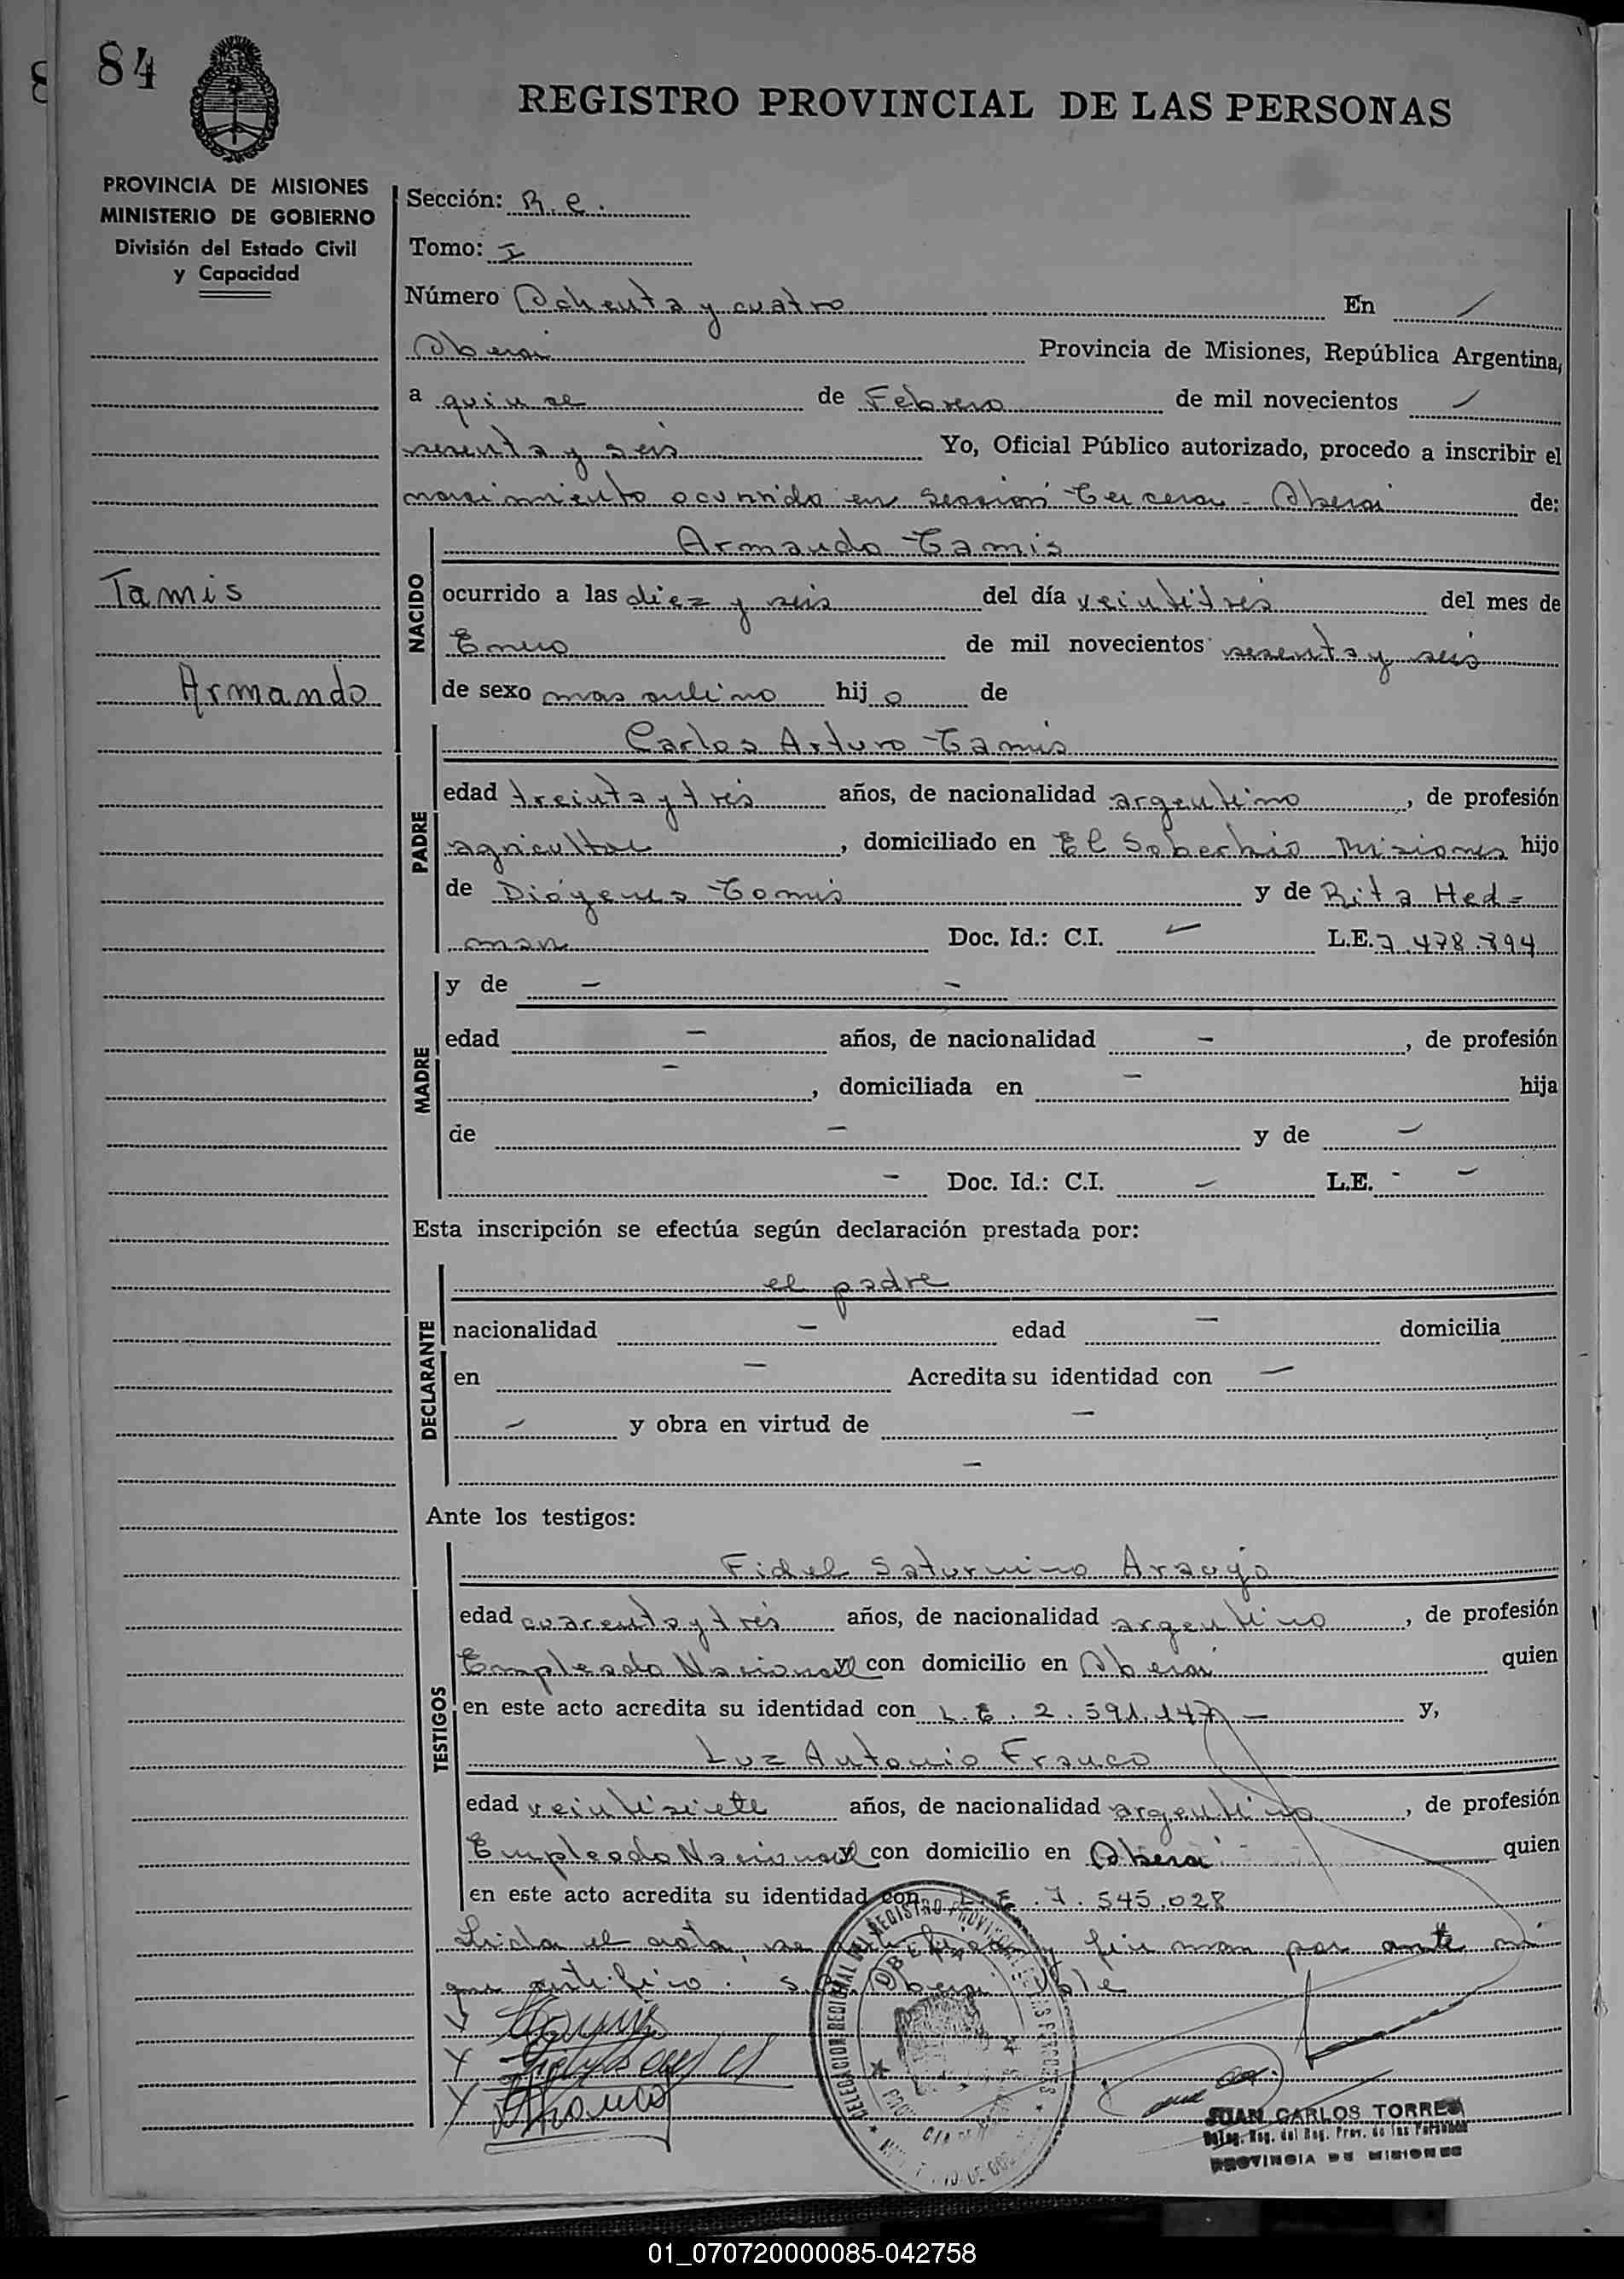 84
REGISTRO PROVINCIAL DE LAS PERSONAS
PROVINCIA DE MISIONES
MINISTERIO DE GOBIERNO
División del Estado Civil
y Capacidad
Sección: R.C.
Tomo: I
Número Ochenta y cuatro En
Oberá Provincia de Misiones, República Argentina,
a quinse de Febrero de mil novecientos
sesenta y seis Yo, Oficial Público autorizado, procedo a inscribir el
nacimiento ocurrido en Sección Tercera - Oberá de:
Tamis
Armando
NACIDO
Armando Tamis
ocurrido a las diez y seis del día veintitrés del mes de
Enero de mil novecientos sesenta y seis
de sexo masculino hijo de
PADRE
Carlos Arturo Tamis
edad treinta y tres años, de nacionalidad argentino, de profesión
agricultor, domiciliado en El Soberbio Misiones hijo
de Diógenes Tamis y de Rita Hed=
man Doc. Id.: C.I. L.E. 7.478.894
MADRE
y de - -
edad - años, de nacionalidad -, de profesión
-, domiciliada en - hija
de - y de -
- Doc. Id.: C.I. - L.E. - -
Esta inscripción se efectúa según declaración prestada por:
DECLARANTE
el padre
nacionalidad - edad - domicilia
en - Acredita su identidad con -
- y obra en virtud de -
-
Ante los testigos:
TESTIGOS
Fidel Saturnino Araujo
edad cuarenta y tres años, de nacionalidad argentino, de profesión
Empleado Nacional y con domicilio en Oberá quien
en este acto acredita su identidad con L.E. 2.591.147 - y,
Luz Antonio Franco
edad veintisiete años, de nacionalidad argentino, de profesión
Empleado Nacional y con domicilio en Oberá quien
en este acto acredita su identidad con L.E. 7.545.028
Leida el acta, se ratifican y firman por ante mi
que certifico. Oberá Vale
DELEGACION REGIONAL DEL REGISTRO PROVINCIAL DE LAS PERSONAS
OBERA
JUAN CARLOS TORRES
Deleg. Reg. del Reg. Prov. de las Personas
PROVINCIA DE MISIONES
01_070720000085-042758